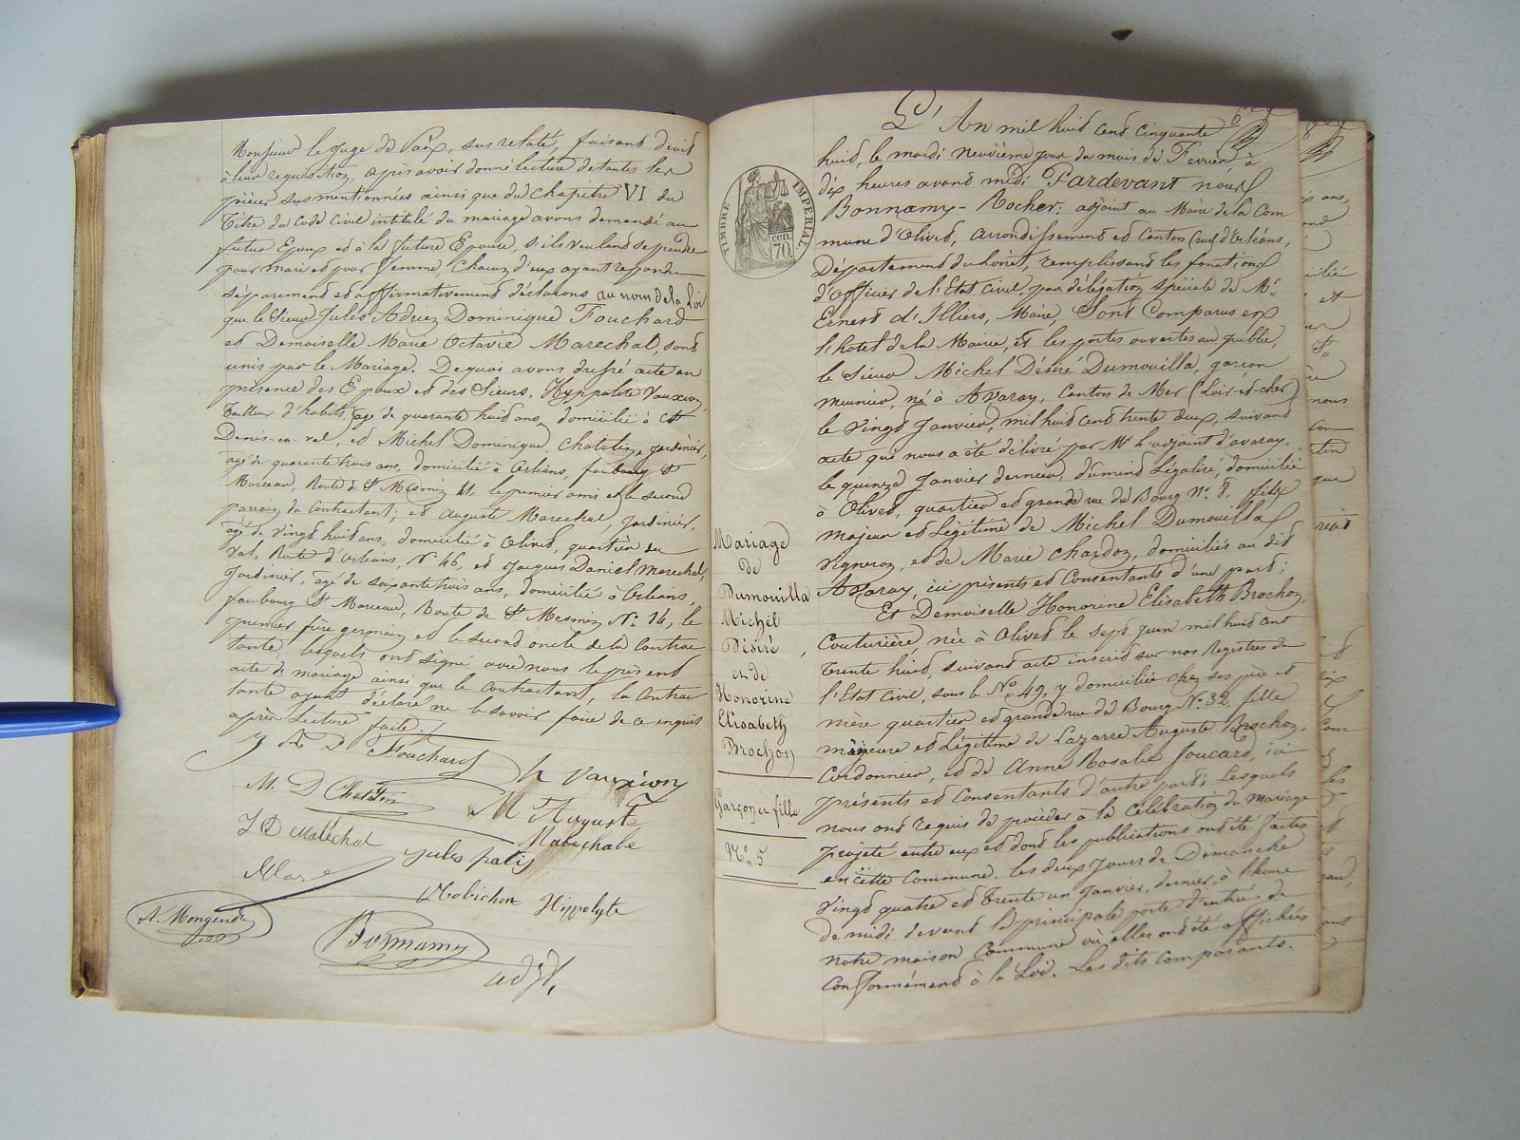 Monsieur le Juge de Paix, sus relaté, faisant droit
à leur requisition, après avoir donné lecture de toutes les
pièces susmentionnées ainsi que du Chapitre VI du
Titre du Code Civil intitulé du mariage avons demandé au
futur Epoux et à la future Epouse, s'ils veulent se prendre
pour mari et pour femme, Chacun d'eux ayant repondu
séparement et affirmativement déclarons au nom de la Loi
que le Sieur Jules Dominique Fouchard
et Demoiselle Marie Octavie Marechal, sont
unis par le Mariage. De quoi avons dressé acte en
présence des Epoux et des Sieurs. Hyppolite Vauxion,
Tailleur d'habits, âgé de quarante huit ans, domicilié à St
Denis-en-val, et Michel Dominique Chatelin, jardinier,
âgé de quarante trois ans, domicilié à Orléans, faubourg St
Marceau, Route de St Mesmin 21, le premier ami et le second
parrain du Contractant; et Auguste Marechal, jardinier,
âgé de vingt huit ans, domicilié à Olivet, quartier du
Val, Route d'Orléans, N° 46, et Jacques Daniel Marechal,
Jardinier, âgé de soixante trois ans, domicilié à Orléans,
faubourg St Marceau, Route de St Mesmin N° 14, le
premier frère germain et le second oncle de la Contrac
tante, lesquels ont signé avec nous le présent
acte de mariage ainsi que le Contractant, la Contrac
tante ayant déclaré ne le savoir faire de ce enquis
après Lecture faite;
J A D Fouchard
h vauxion
M. D Chatelin
M Auguste
Marechale
J D Maréchal
jules patis
Robichon Hippolyte
A. Mongendre
Bonnamy
adjt,
L'An mil huit cent Cinquante
huit, le mardi neuvième jour du mois de Février à
dix heures avant midi Pardevant nous
Bonnamy-Rocher, adjoint au Maire de la Com
mune d'Olivet, Arrondissement et Canton (sud) d'Orléans,
Département du Loiret, remplissant les fonctions
d'Officier de l'Etat Civil, par délégation spéciale de Mr
Ernest d'Illiers, Maire, Sont Comparus en
l'hotel de la Mairie, et les portes ouvertes au public,
le Sieur Michel Désiré Dumouilla, garçon
meunier, né à Avaray, Canton de Mer (Loir-et-cher)
le Vingt Janvier, mil huit cent trente deux, suivant
acte qui nous a été délivré par Mr L'adjoint d'avaray
le quinze Janvier dernier, dument légalisé, domicilié
à Olivet, quartier et grande rue du Bourg N° 8, fils
majeur et légitime de Michel Dumouilla
Vigneron, et de Marie Chardon, domiciliés au dit
Avaray, ici présents et Consentants d'une part;
Et Demoiselle Honorine Elisabeth Brochon,
Couturière, née à Olivet le sept juin mil huit cent
trente huit, suivant acte inscrit sur nos Registres de
l'Etat Civil, sous le N° 49, y domiciliée chez ses père et
mère quartier et grande rue du Bourg N° 32 fille
mineure et légitime de Lazarre Auguste Brochon,
Cordonnier, et de Anne Rosalie Foucard, ici
présents et Consentants d'autre part; lesquels
nous ont requis de procéder à la Célébration du mariage
projeté entre eux et dont les publications ont été faites
en cette Commune. les deux Jours de Dimanche
vingt quatre et trente un Janvier, dernier, à l'heure
de midi devant la principale porte d'entrée de
notre maison Commune où elles ont été affichées
Conformément à la Loi. Les dits Comparants.
TIMBRE IMPERIAL
CEN.
70
Mariage
de
Dumouilla
Michel
Désiré
et de
Honorine
Elisabeth
Brochon
Garçon et fille
N° 5